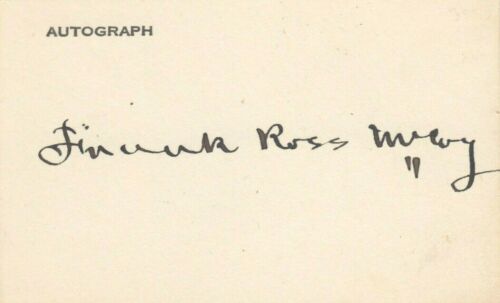 AUTOGRAPH
Frank Ross McCoy